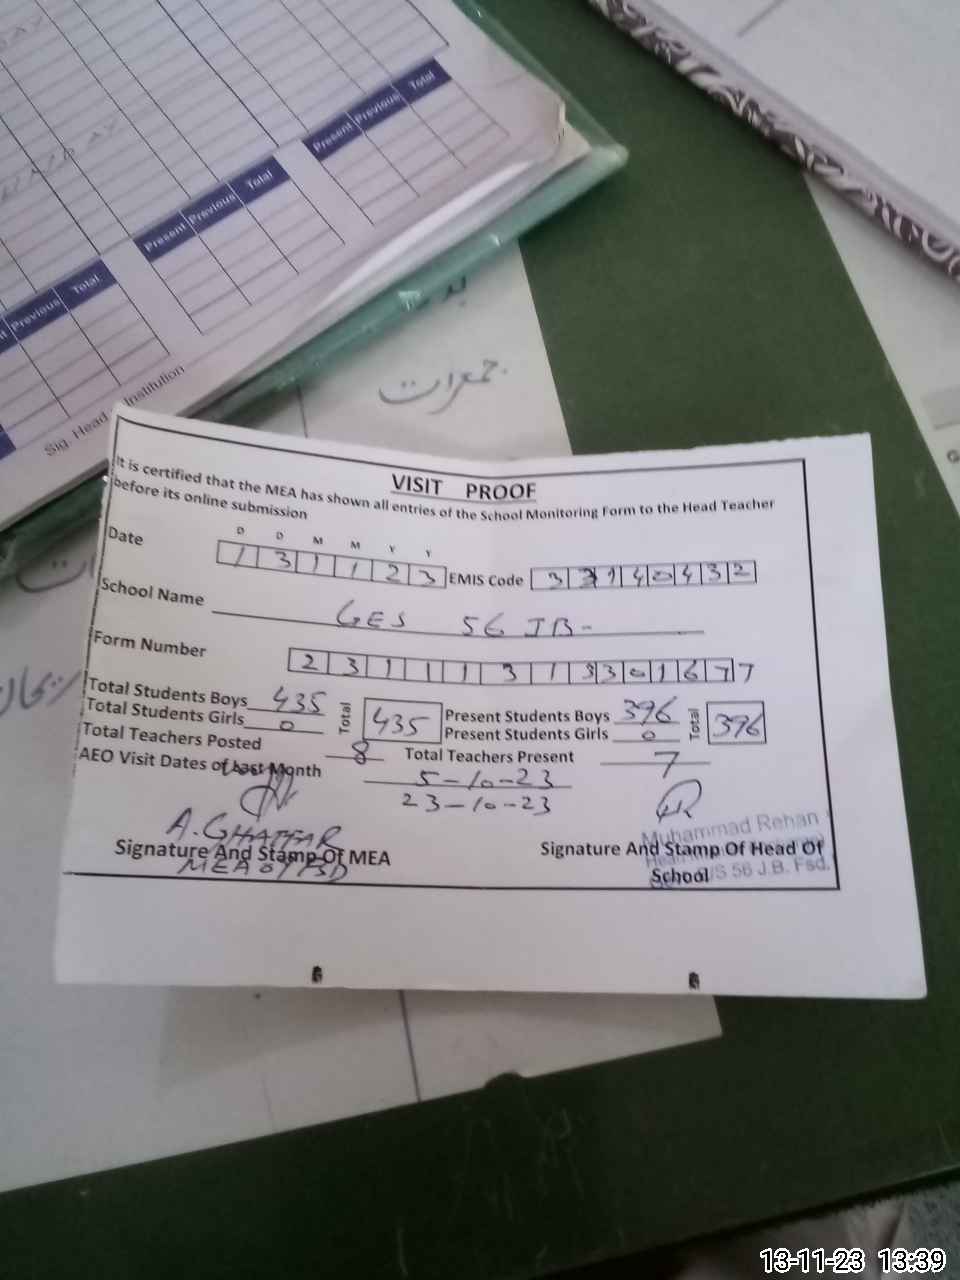 Present Previous Total
Present Previous Total
Previous Total
Sig. Head Institution
جمعرات
VISIT PROOF
It is certified that the MEA has shown all entries of the School Monitoring Form to the Head Teacher
before its online submission
D D M M Y Y
Date 1 3 1 1 2 3 EMIS Code
School Name GES 56 JB-
Form Number
Total Students Boys 435 Total 435 Present Students Boys 396 Total 396
Total Students Girls 0 Present Students Girls 0
Total Teachers Posted 8 Total Teachers Present 7
AEO Visit Dates of Last Month 5-10-23
23-10-23
A. GHAFFAR
Muhammad Rehan
Signature And Stamp Of MEA Signature And Stamp Of Head Of
School
56 J.B. Fsd.
13-11-23 13:39